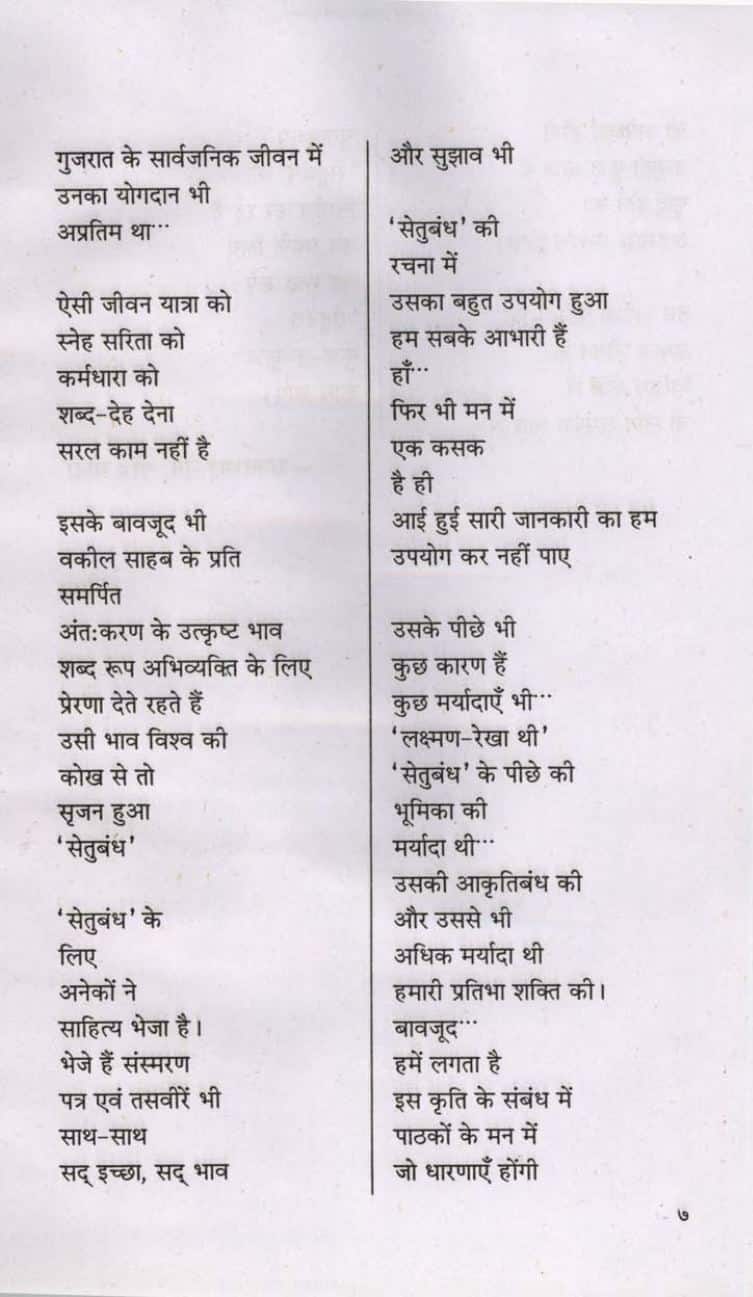 गुजरात के सार्वजनिक जीवन में
उनका योगदान भी
अप्रतिम था...
ऐसी जीवन यात्रा को
स्नेह सरिता को
कर्मधारा को
शब्द-देह देना
सरल काम नहीं है
इसके बावजूद भी
वकील साहब के प्रति
समर्पित
अंत:करण के उत्कृष्ट भाव
शब्द रूप अभिव्यक्ति के लिए
प्रेरणा देते रहते हैं
उसी भाव विश्व की
कोख से तो
सृजन हुआ
‘सेतुबंध’
‘सेतुबंध’ के
लिए
अनेकों ने
साहित्य भेजा है।
भेजे हैं संस्मरण
पत्र एवं तसवीरें भी
साथ-साथ
सद् इच्छा, सद् भाव
और सुझाव भी
‘सेतुबंध’ की
रचना में
उसका बहुत उपयोग हुआ
हम सबके आभारी हैं
हाँ...
फिर भी मन में
एक कसक
है ही
आई हुई सारी जानकारी का हम
उपयोग कर नहीं पाए
उसके पीछे भी
कुछ कारण हैं
कुछ मर्यादाएँ भी...
‘लक्ष्मण-रेखा थी’
‘सेतुबंध’ के पीछे की
भूमिका की
मर्यादा थी...
उसकी आकृतिबंध की
और उससे भी
अधिक मर्यादा थी
हमारी प्रतिभा शक्ति की।
बावजूद...
हमें लगता है
इस कृति के संबंध में
पाठकों के मन में
जो धारणाएँ होंगी
७